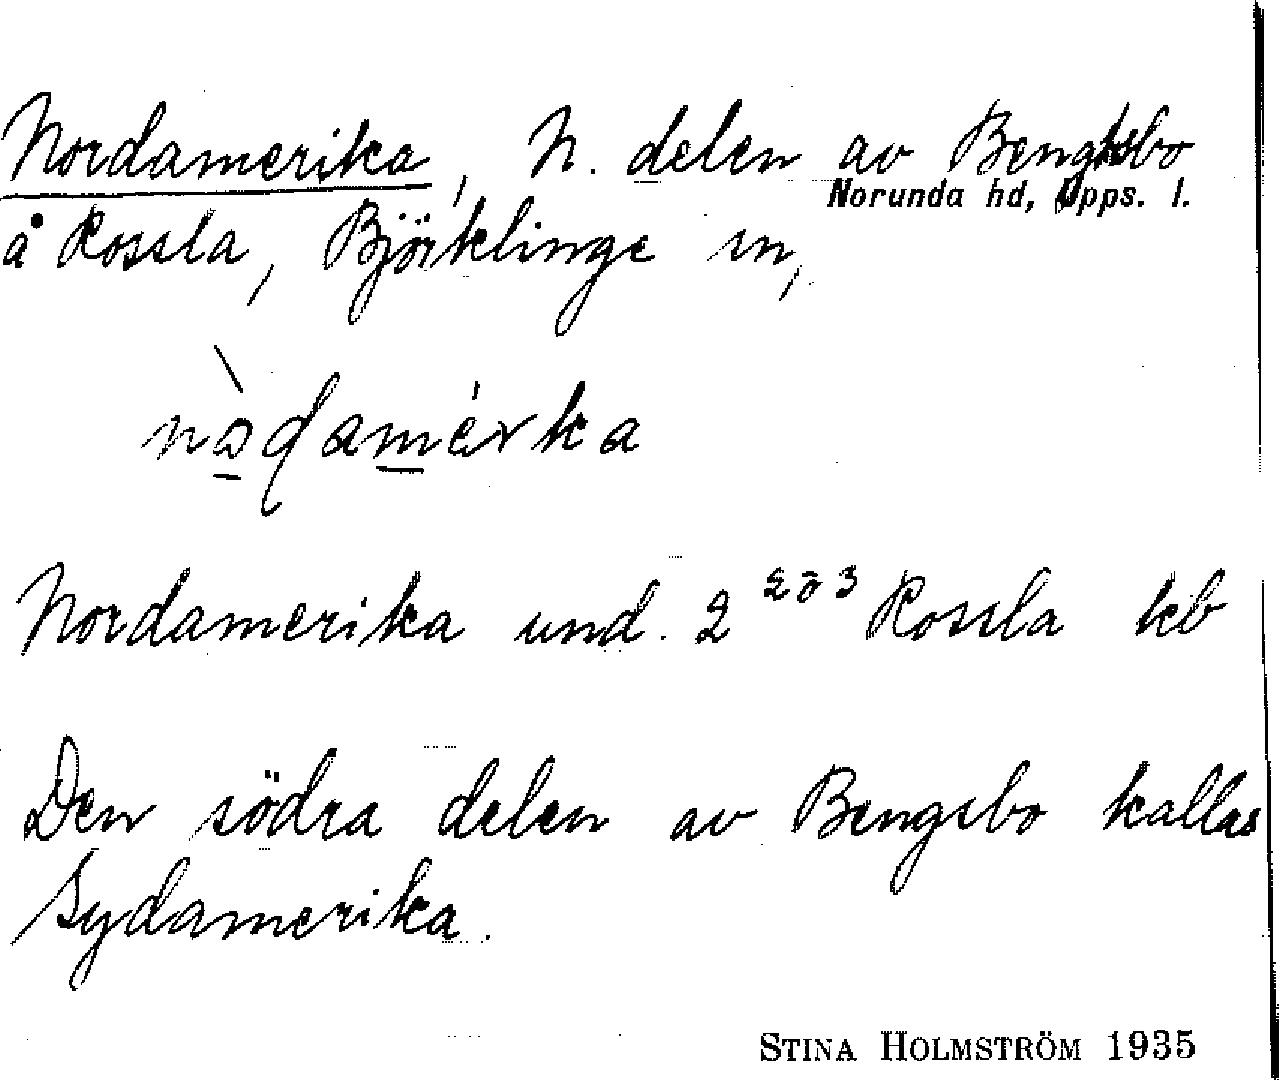 Nordamerika, N. delen av Bengtsbo
Norunda hd, Upps. l.
å Rossla, Björklinge sn,
Nordamerika und. 2 2 o 3 Rossla kb
Den södra delen av Bengsbo kallas
Sydamerika.
STINA HOLMSTRÖM 1935